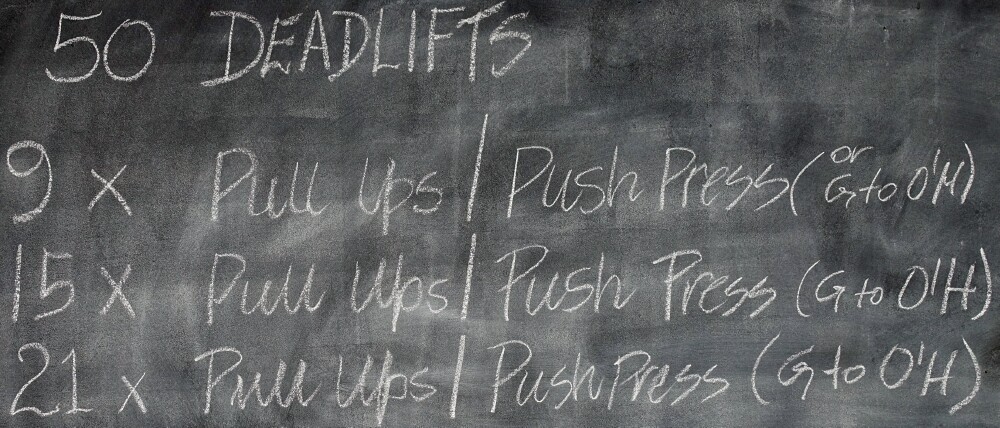 50 DEADLIFTS
9 x Pull Ups / Push Press (or G to O'H)
15 x Pull Ups / Push Press (G to O'H)
21 x Pull Ups / Push Press (G to O'H)